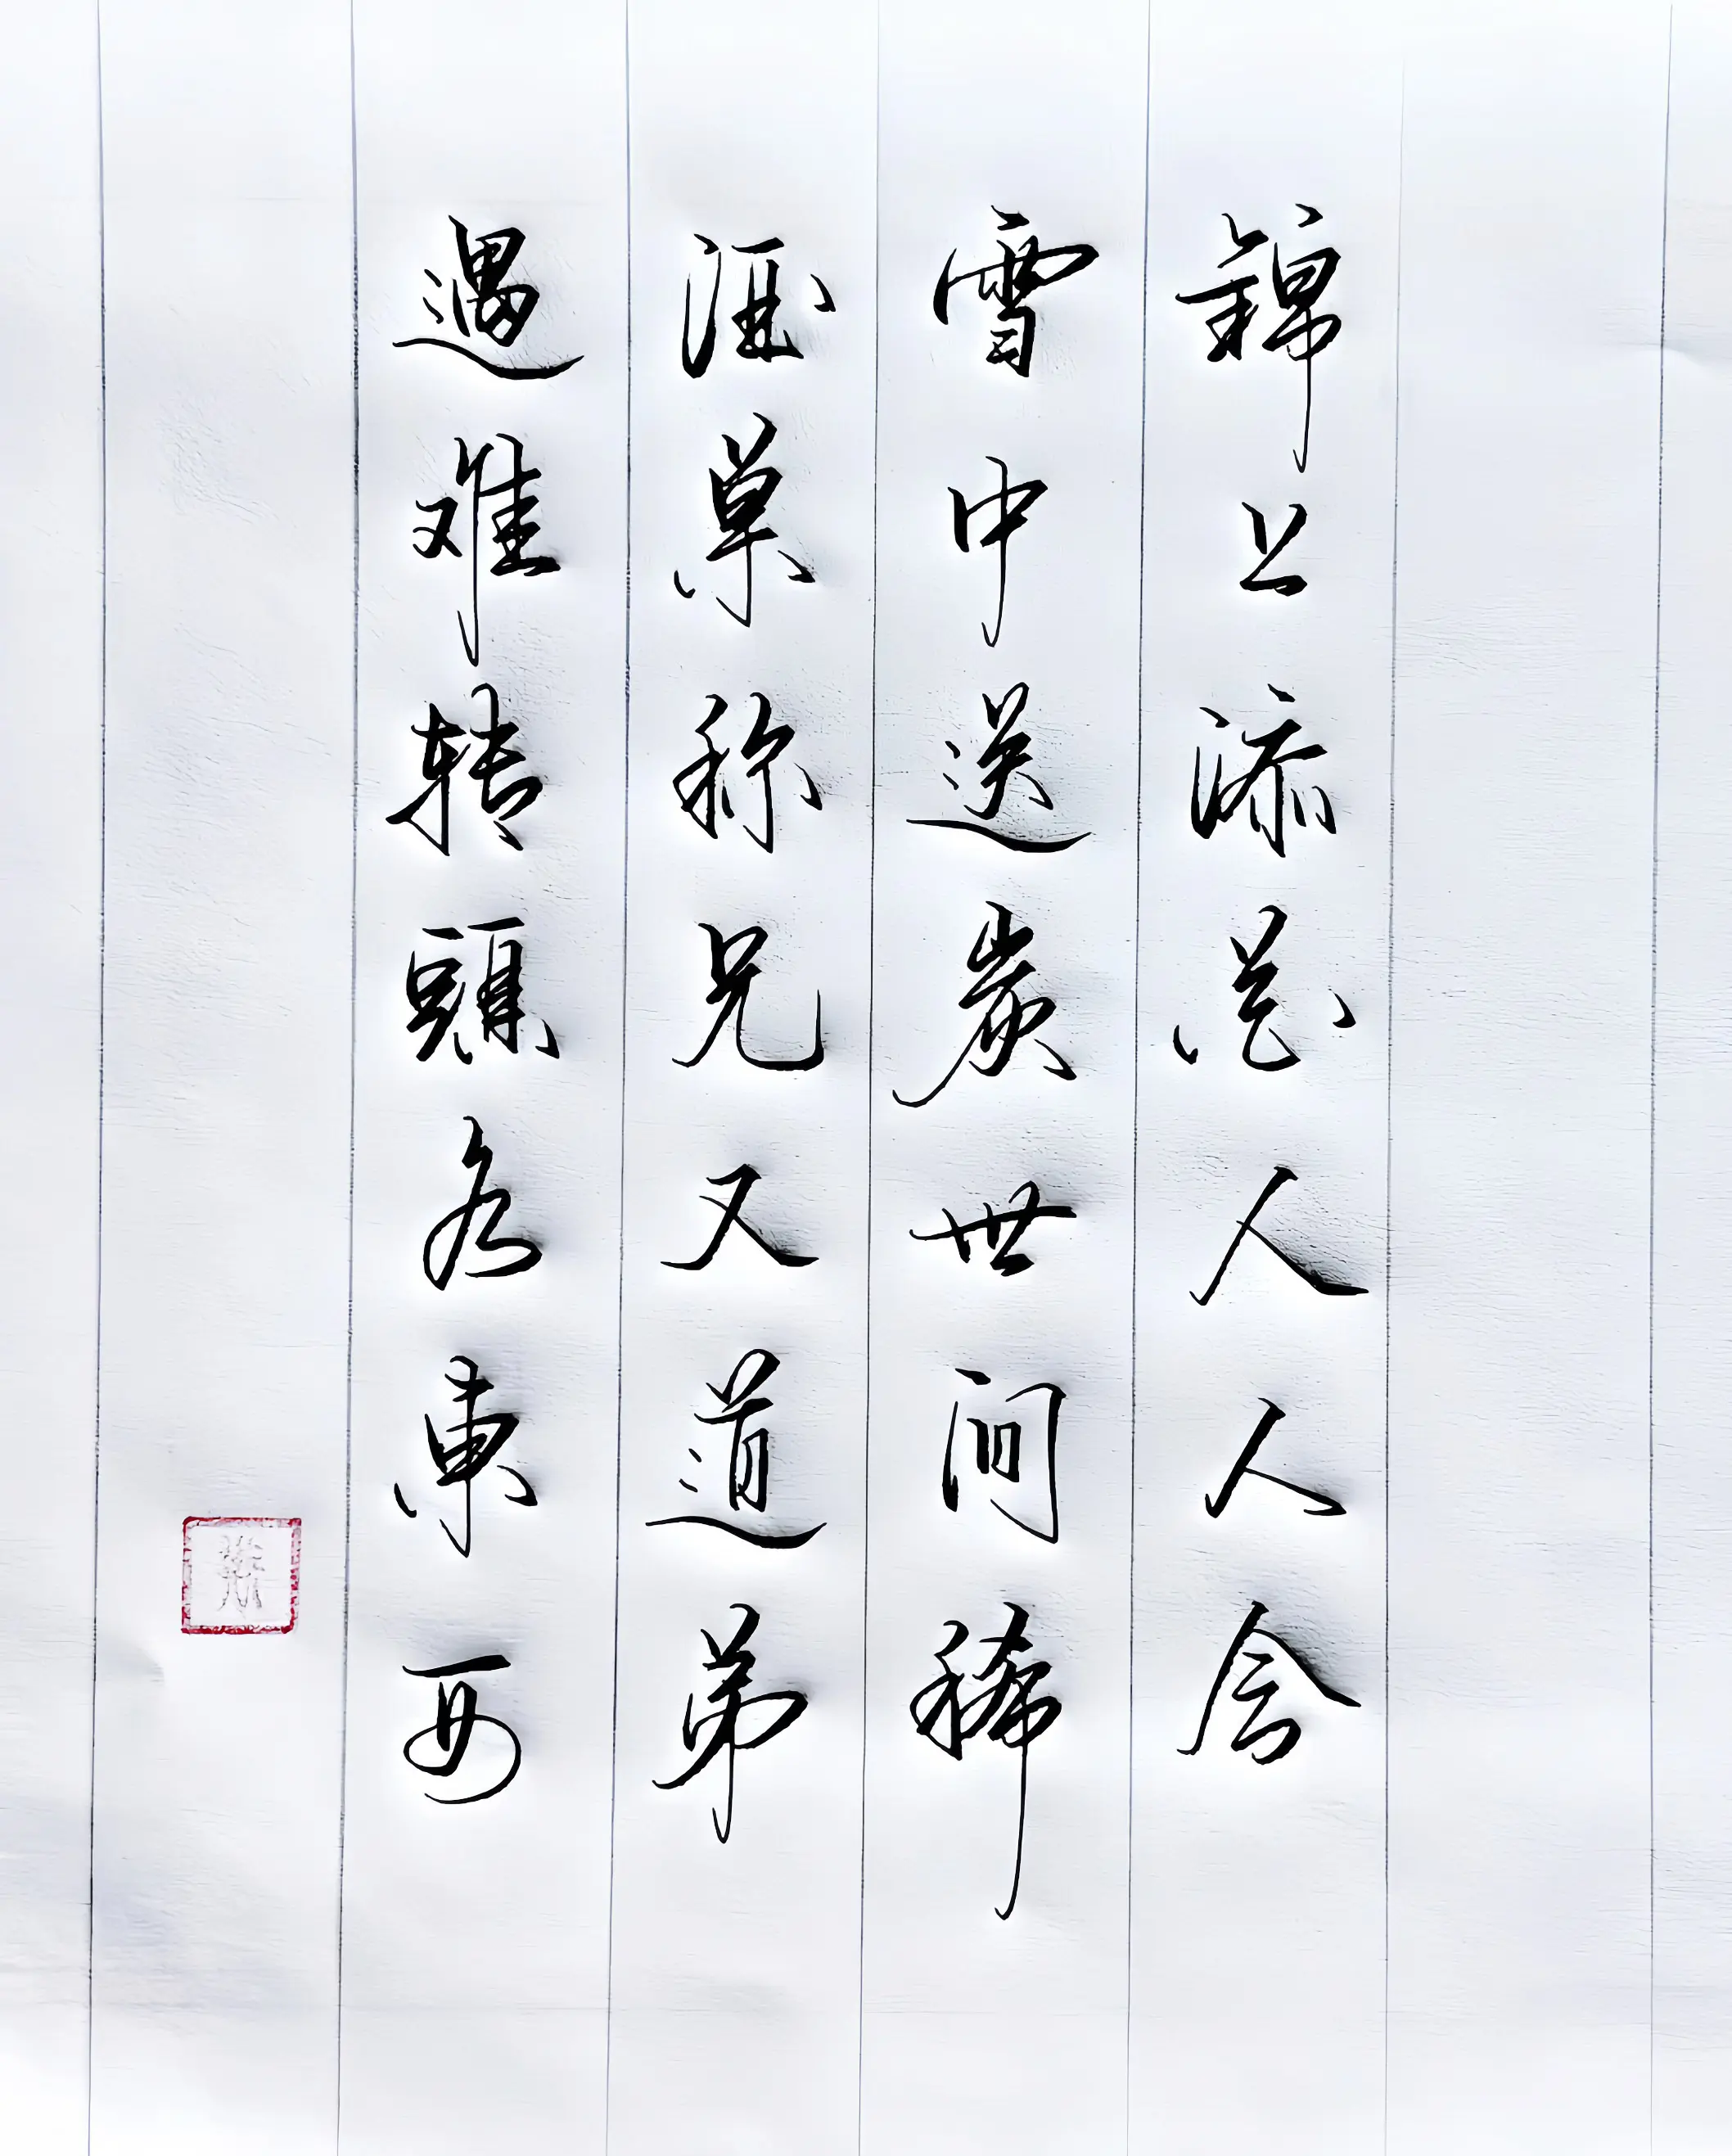 錦上添花人人会
雪中送炭世间稀
酒桌称兄又道弟
遇难转頭各東西